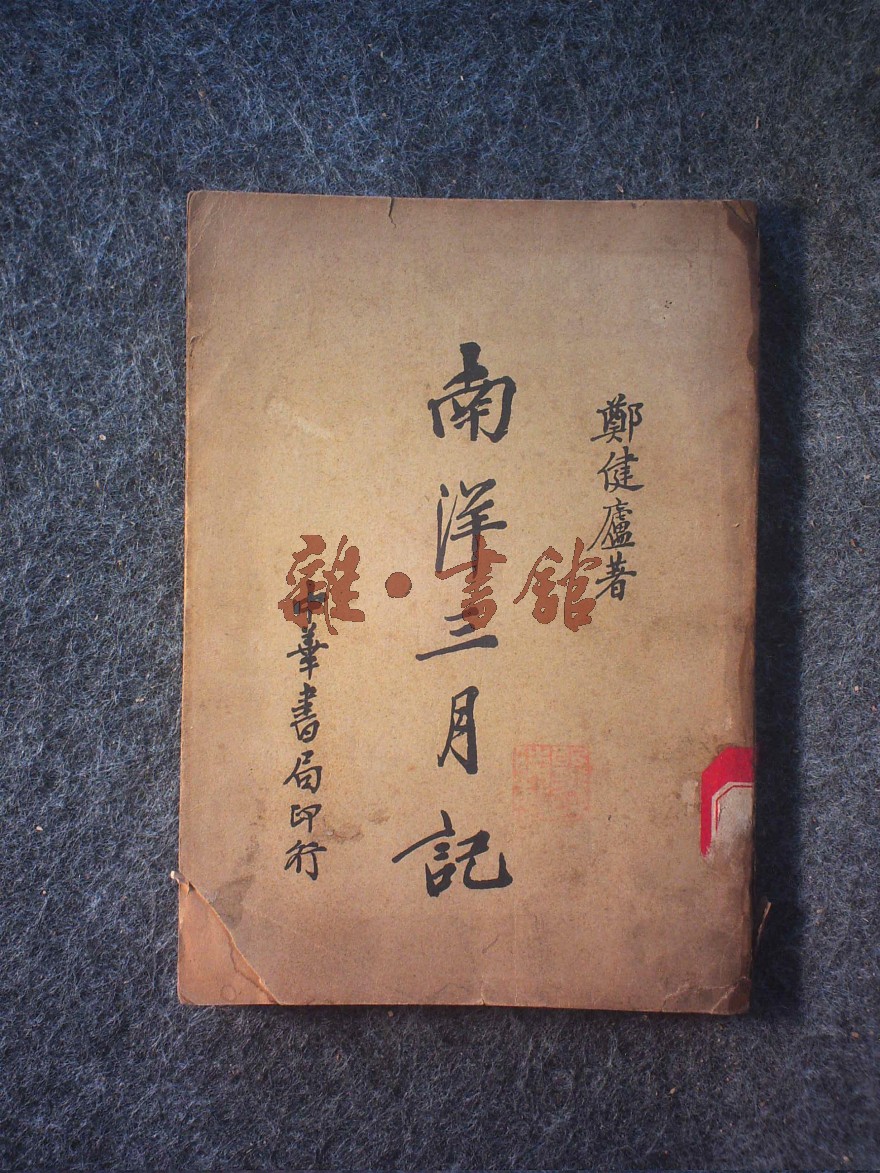 鄭健廬著
南洋三月記
中華書局印行
雜·書館